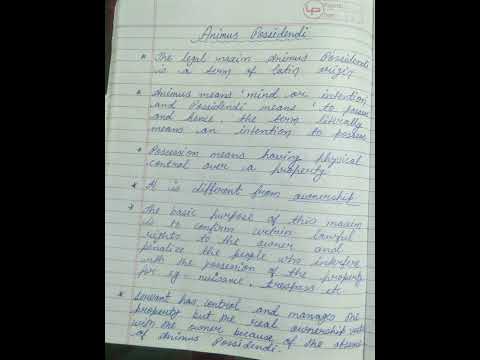 Animus Possidendi
* The legal maxim Animus Possidendi
is a term of latin origin
* Animus means 'mind or intention
and Possidendi means 'to possess
and hence, the term literally
means an intention to possess
* Possession means having physical
control over a property
* It is different from ownership
* The basic purpose of this maxim
is to confirm certain lawful
rights to the owner and
penalize the people who interfere
with the possession of the property
for eg - nuisance, trespass etc
* Servant has control and manages the
property but the real ownership vests
with the owner because of the absence
of Animus Possidendi.